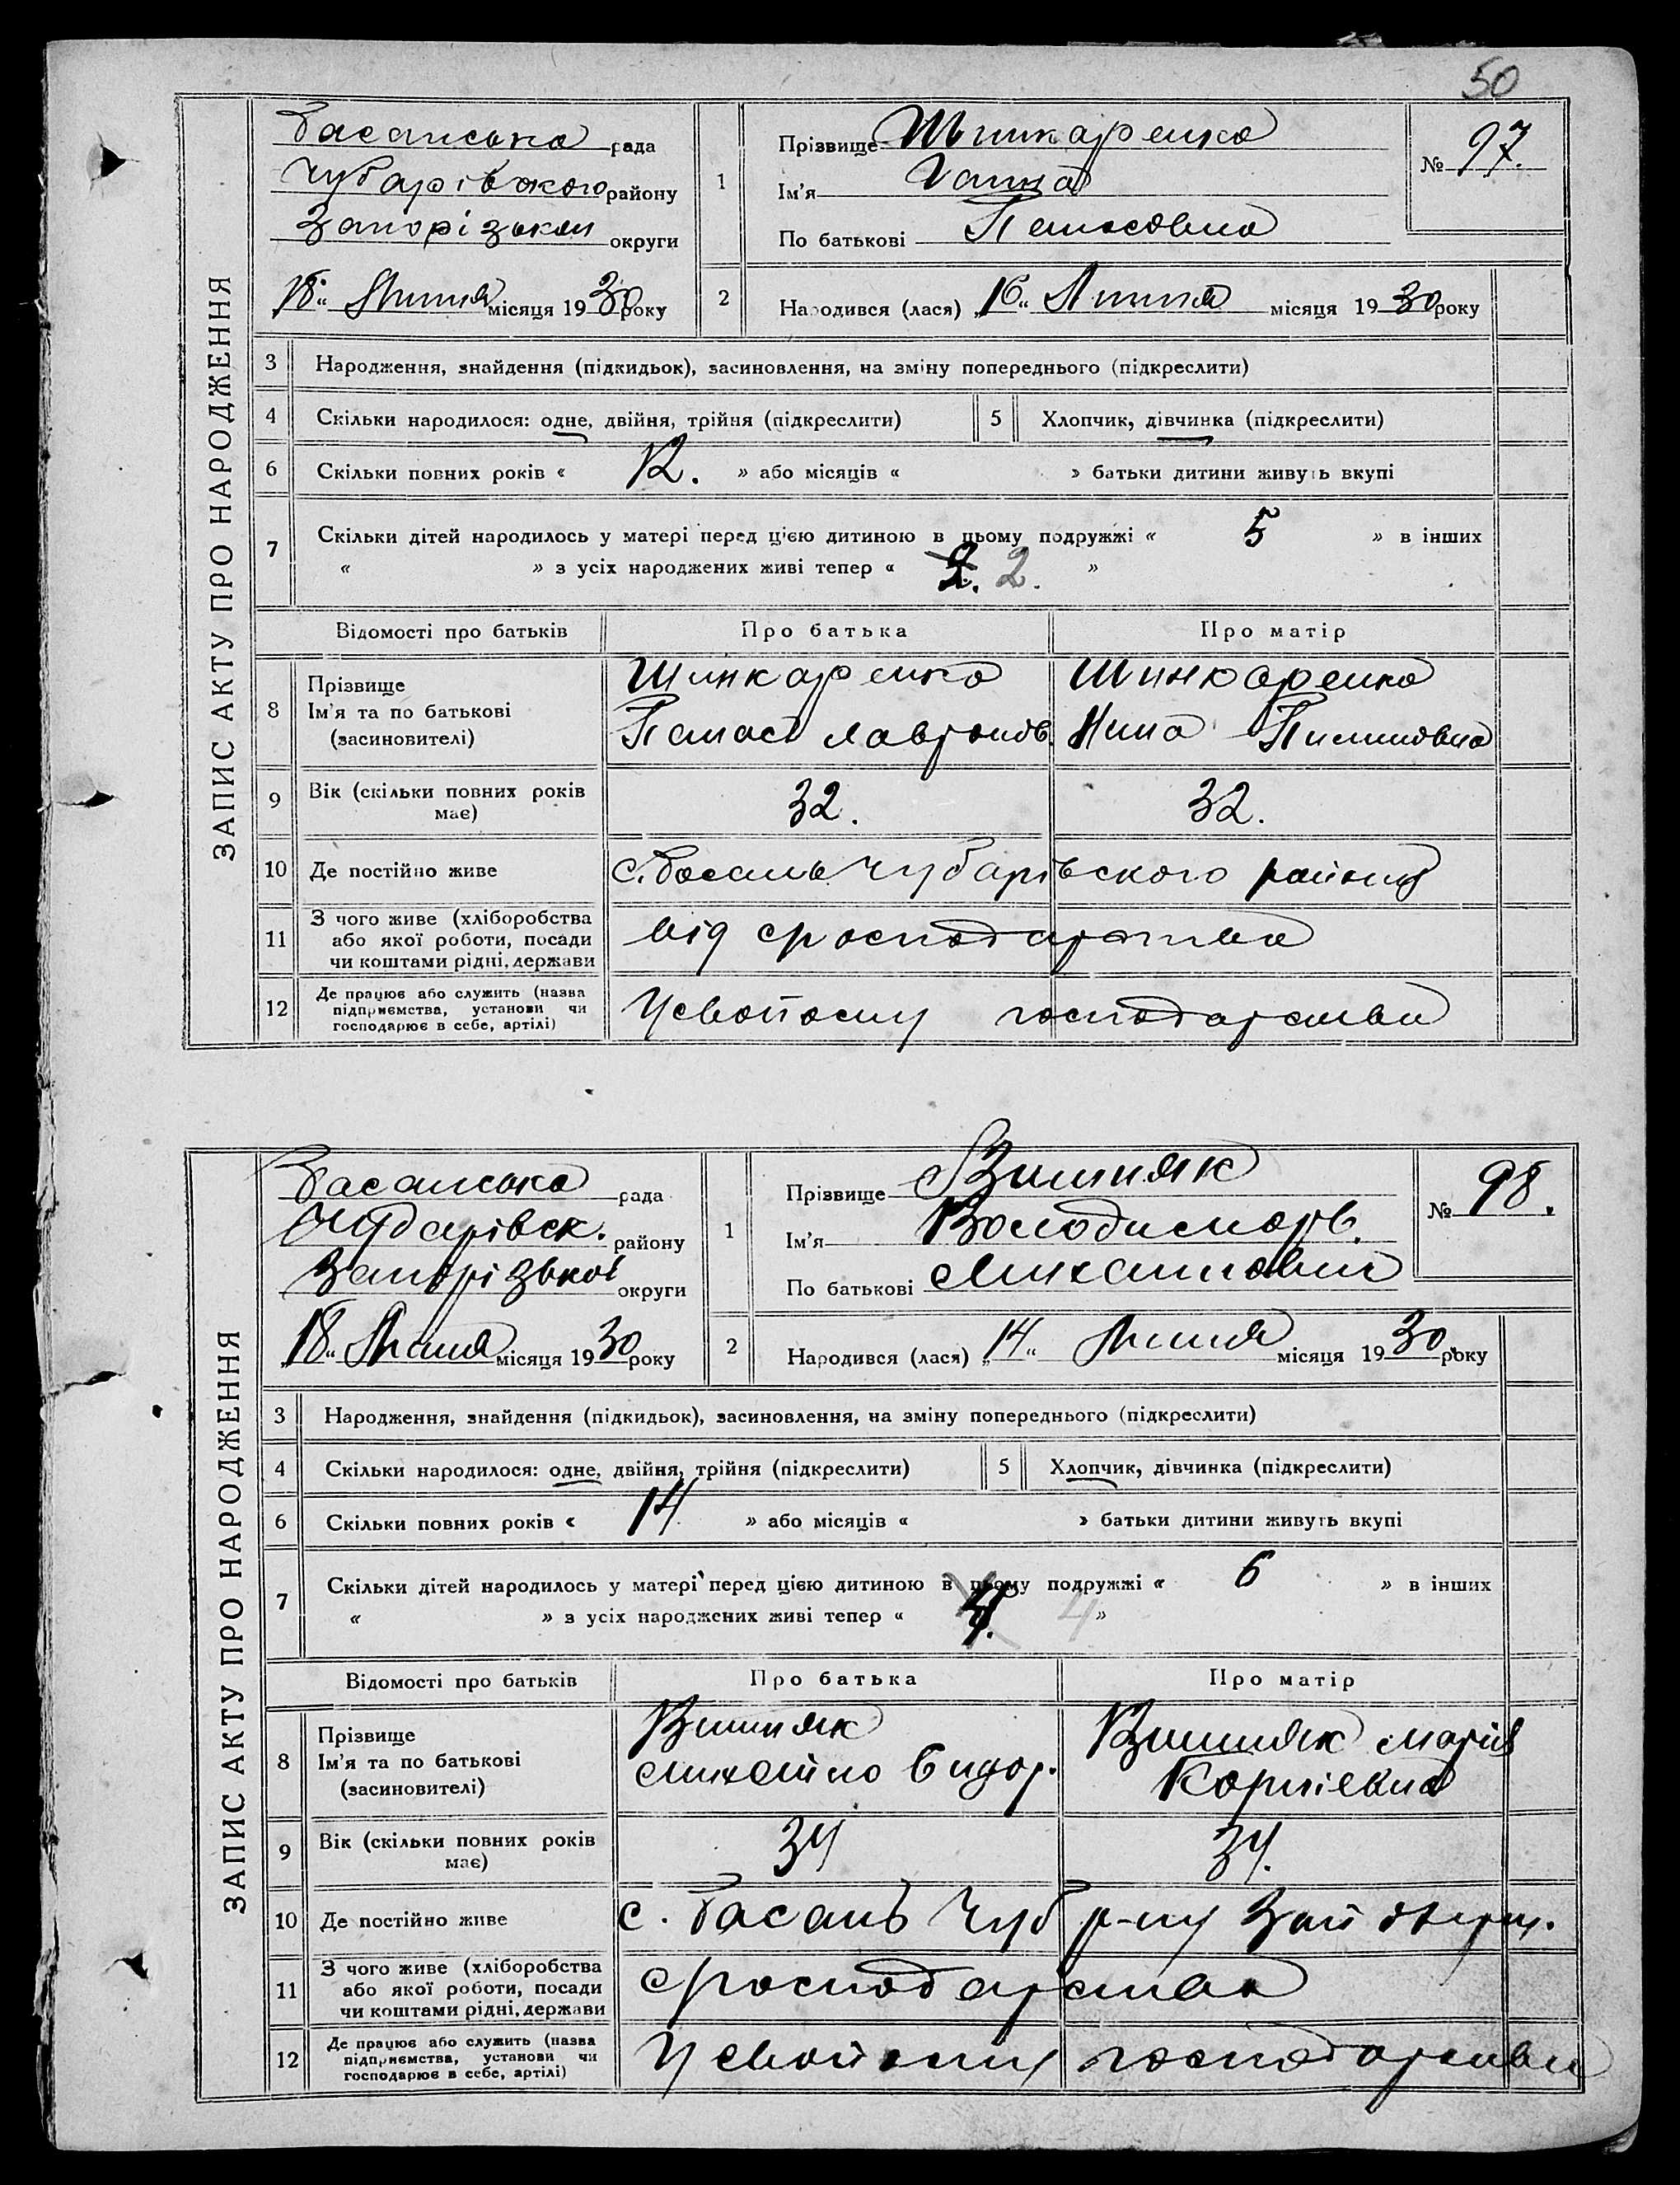 50
ЗАПИС АКТУ ПРО НАРОДЖЕННЯ
Басанська рада
Чубарівського району
Запорізької округи
„18“ Липня місяця 1930 року
1
Прізвище Шинкаренко
Ім'я Ганна
По батькові Панасовна
№ 97.
2
Народився (лася) „16“ Липня місяця 1930 року
3 Народження, знайдення (підкидьок), засиновлення, на зміну попереднього (підкреслити)
4 Скільки народилося: одне, двійня, трійня (підкреслити) 5 Хлопчик, дівчинка (підкреслити)
6 Скільки повних років « 12. » або місяців « » батьки дитини живуть вкупі
7 Скільки дітей народилось у матері перед цією дитиною в цьому подружжі « 5 » в інших
« » з усіх народжених живі тепер « 2. »
Відомості про батьків Про батька Про матір
8 Прізвище
Ім'я та по батькові
(засиновителі)
Шинкаренко
Панас Лавронов.
Шинкаренко
Нина Пилиповна
9 Вік (скільки повних років має) 32. 32.
10 Де постійно живе с. Басань Чубарівского району
11 З чого живе (хліборобства
або якої роботи, посади
чи коштами рідні, держави
від господарства
12 Де працює або служить (назва
підприємства, установи чи
господарює в себе, артілі)
У своїому господарстви
ЗАПИС АКТУ ПРО НАРОДЖЕННЯ
Басанська рада
Чубарівск. району
Запорізької округи
„18“ Липня місяця 1930 року
1
Прізвище Вишняк
Ім'я Володимирь.
По батькові Михайлович
№ 98.
2
Народився (лася) „14“ Липня місяця 1930 року
3 Народження, знайдення (підкидьок), засиновлення, на зміну попереднього (підкреслити)
4 Скільки народилося: одне, двійня, трійня (підкреслити) 5 Хлопчик, дівчинка (підкреслити)
6 Скільки повних років « 14 » або місяців « » батьки дитини живуть вкупі
7 Скільки дітей народилось у матері перед цією дитиною в цьому подружжі « 6 » в інших
« » з усіх народжених живі тепер « 4 »
Відомості про батьків Про батька Про матір
8 Прізвище
Ім'я та по батькові
(засиновителі)
Вишняк
Михайло
Вишняк Марія
Корніевна
9 Вік (скільки повних років має) 34 34.
10 Де постійно живе с. Басань Чуб р-ну Зап округ.
11 З чого живе (хліборобства
або якої роботи, посади
чи коштами рідні, держави
Господарства
12 Де працює або служить (назва
підприємства, установи чи
господарює в себе, артілі)
У своїому господарстви